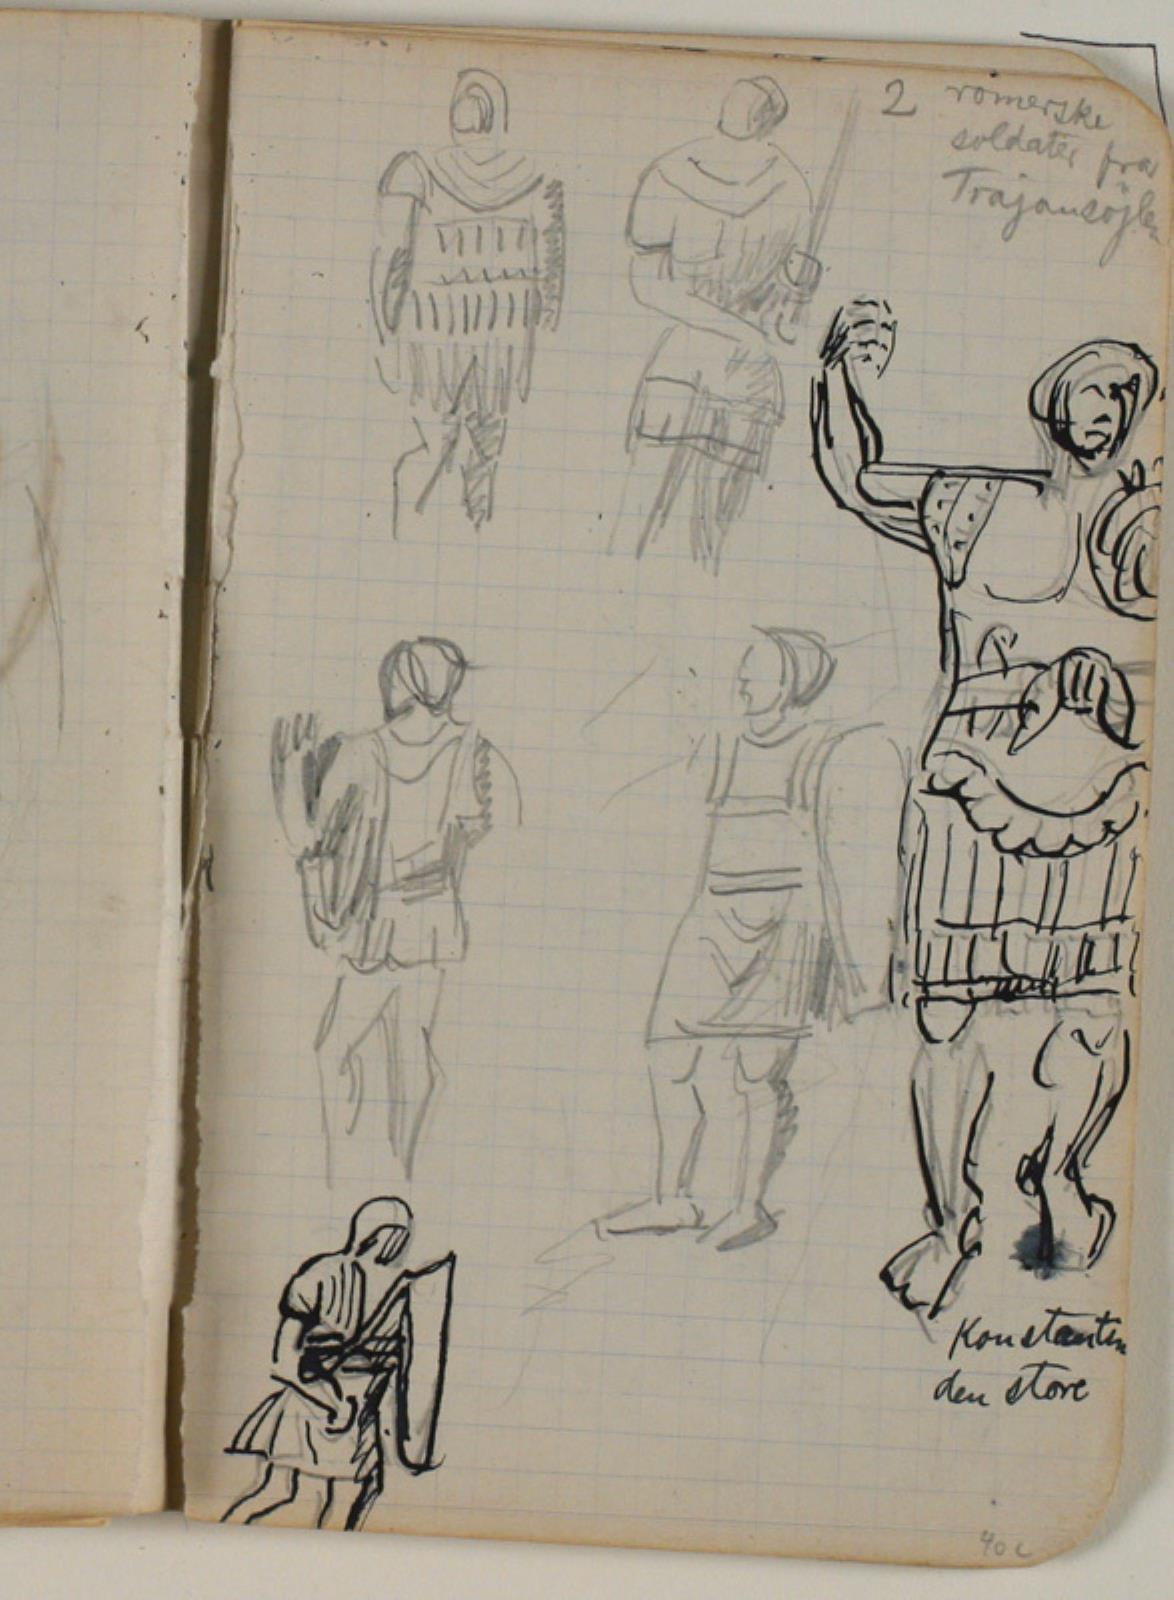 2 romerske
soldater fra
Trajansøjlen
Konstantin
den store
40 c